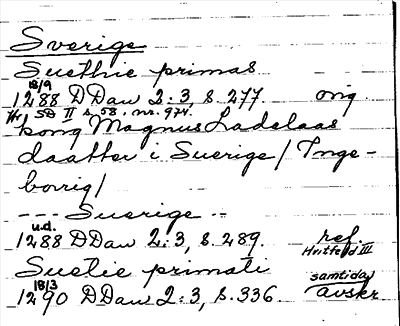 Sverige
Suethie primas
18/9
1288 DDan 2:3, s. 277. orig.
Hr SD II s. 58. nr. 974.
kong Magnus Ladelaas
daatter i Suerige / Inge-
borrig /
--- Suerige --
u.d.
1288 DDan 2:3, s. 289. ref.
Hvitfeld III
Suetie primati
18/3 samtida
1290 DDan 2:3, s. 336 avskr